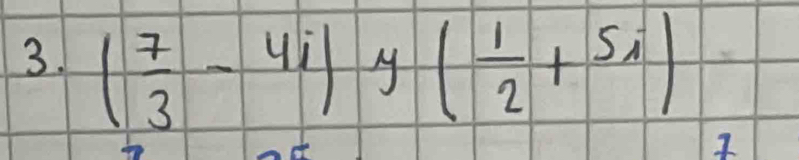 3. (7/3 - 4i) y (1/2 + 5i)